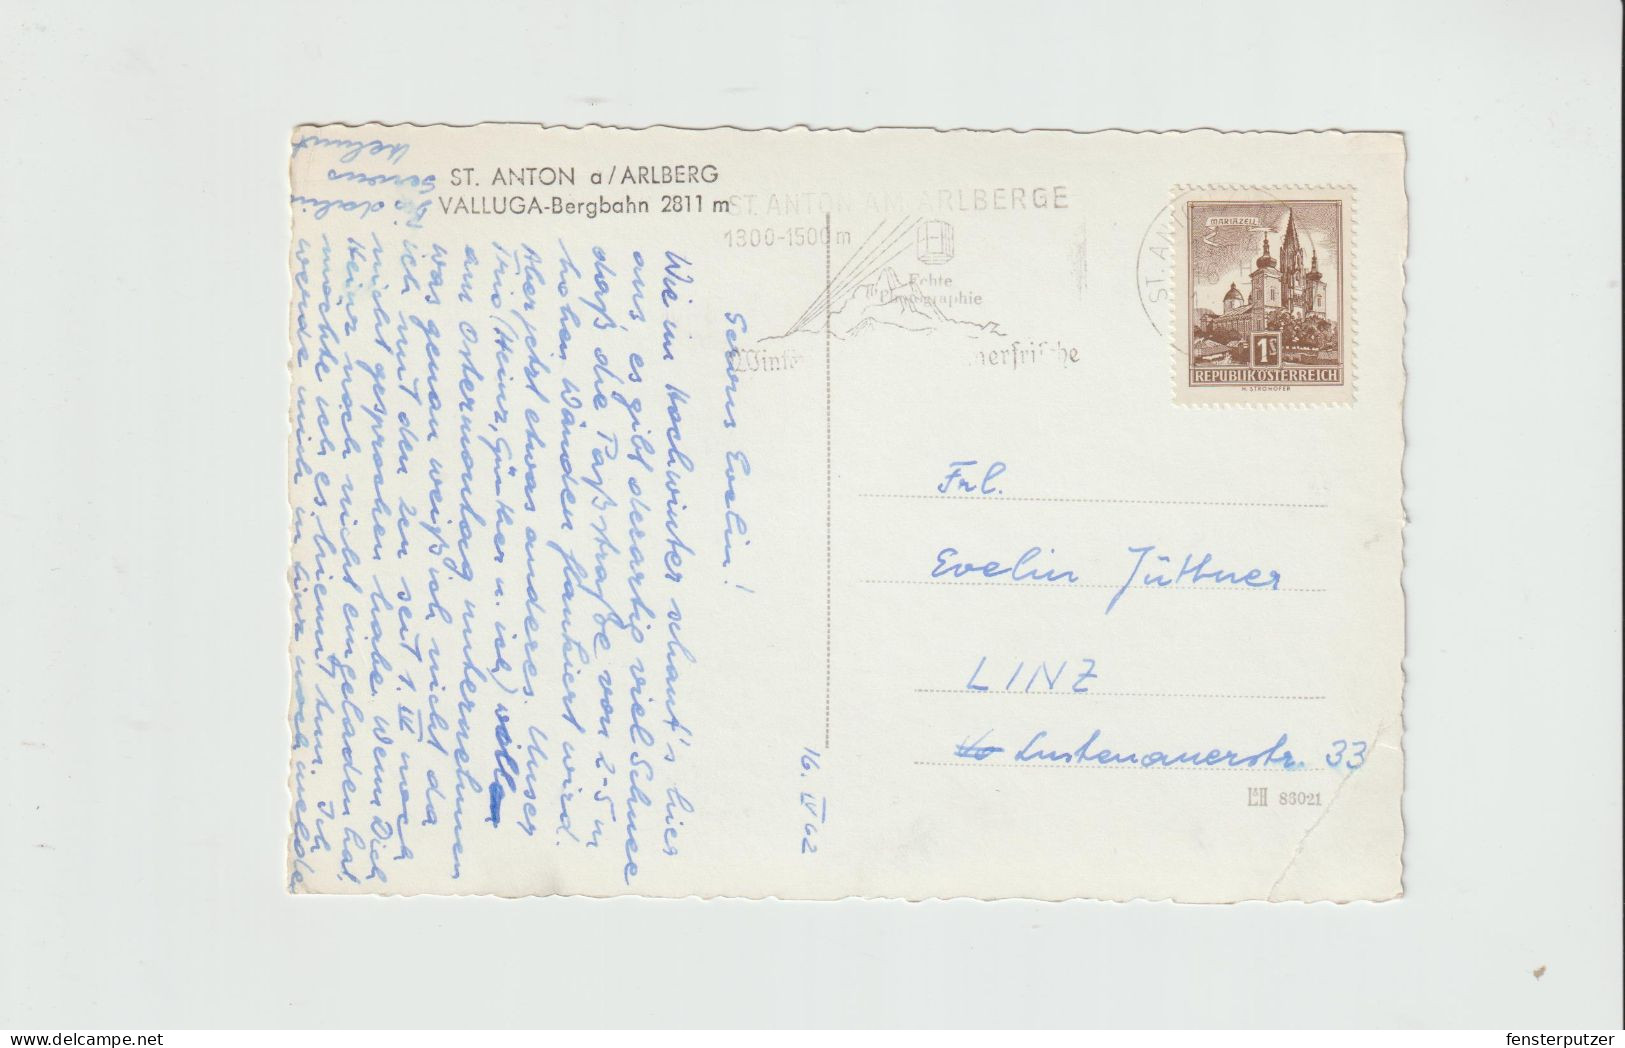 ST. ANTON a/ARLBERG
VALLUGA-Bergbahn 2811 m
ST. ANTON AM ARLBERGE
1300-1500 m
Echte
Photographie
Wint
merfrische
ST. AN
MARIAZELL
1S
REPUBLIK ÖSTERREICH
H. STROHOFER
16. IV 62
Servus Evelin!
Wie im Hochwinter schaut's hier
aus, es gibt derartig viel Schnee
daß die Paßstraße von 2-5 m
hohen Wänden flankiert wird.
Aber jetzt etwas anderes. Unser
Trio (Heinz, Günther u. ich) wollen
am Ostermontag unternehmen
was genau weiß ich nicht da
ich mit den zu seit 1. IV noch
nicht gesprochen habe. Wenn Dich
Heinz noch nicht eingeladen hat,
möchte ich es hiemit tun. Ich
werde mich in Linz noch melde
Bis dahin
Servus
Helmut
Frl.
Evelin Jüttner
LINZ
Lustenauerstr. 33
86021
fensterputzer
delcampe.net